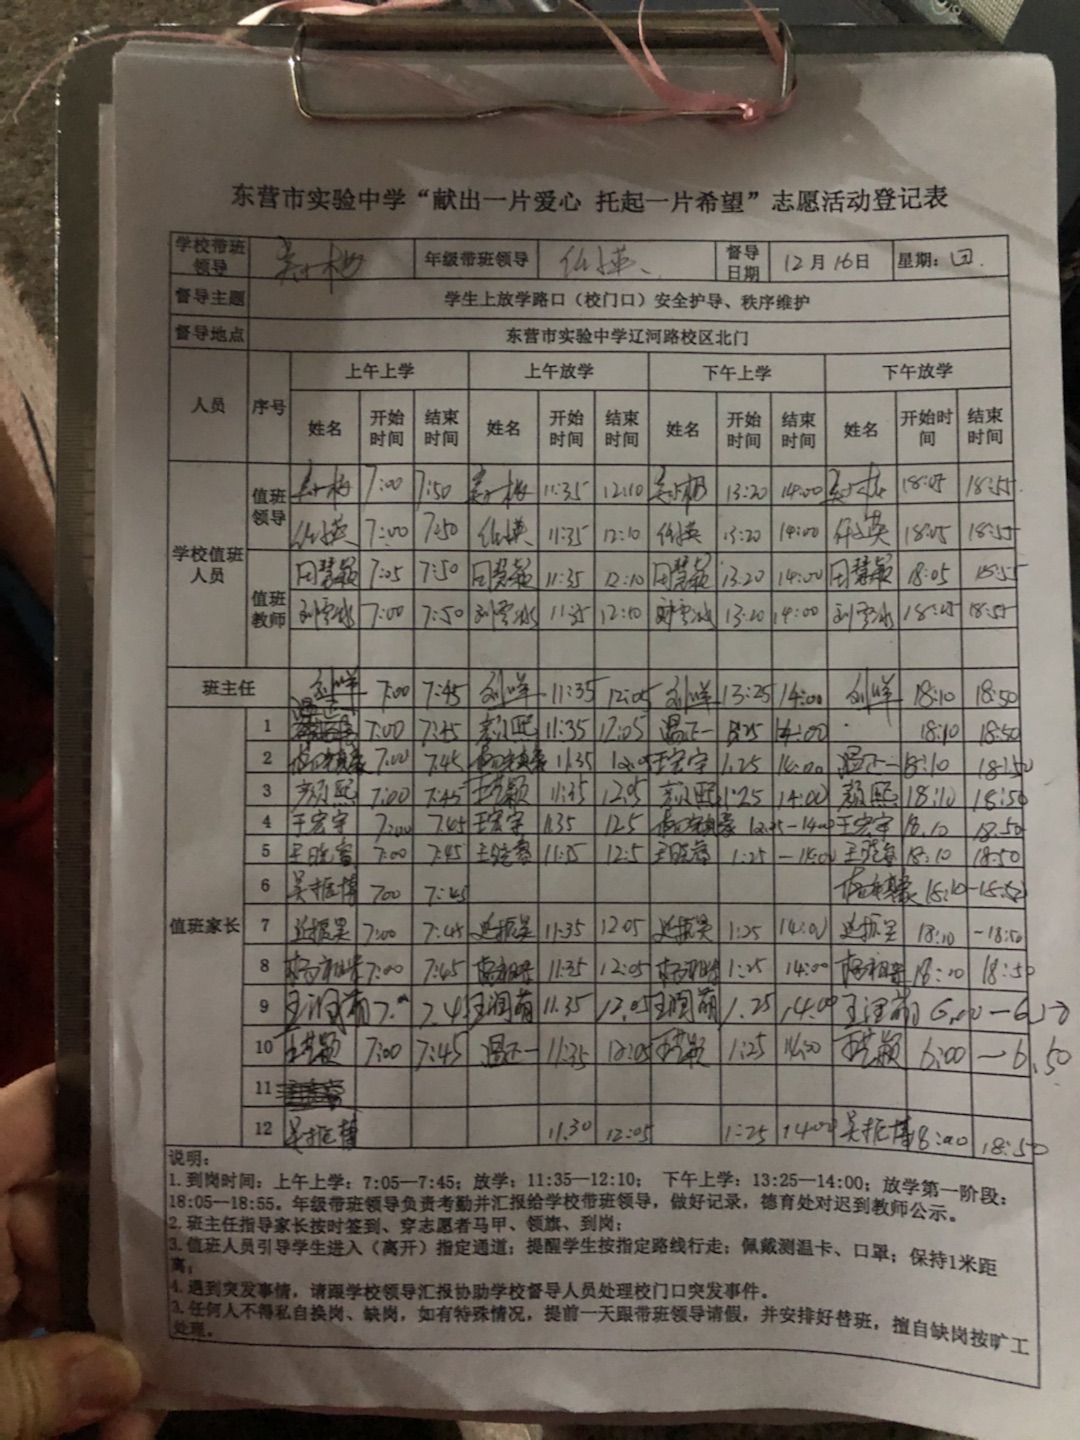 东营市实验中学“献出一片爱心 托起一片希望”志愿活动登记表
学校带班领导 年级带班领导 督导日期 12月16日 星期：四.
督导主题 学生上放学路口（校门口）安全护导、秩序维护
督导地点 东营市实验中学辽河路校区北门
人员 序号 上午上学 上午放学 下午上学 下午放学
姓名 开始时间 结束时间 姓名 开始时间 结束时间 姓名 开始时间 结束时间 姓名 开始时间 结束时间
学校值班人员
值班领导 7:00 7:50 11:35 12:10 13:20 14:00 18:05 18:55
7:00 7:50 11:35 12:10 13:20 14:00 18:05 18:55
值班教师 田慧颖 7:05 7:50 田慧颖 11:35 12:10 田慧颖 13:20 14:00 田慧颖 18:05 18:55
刘雪冰 7:00 7:50 刘雪冰 11:35 12:10 刘雪冰 13:20 14:00 刘雪冰 18:05 18:55
班主任 刘洋 7:00 7:45 刘洋 11:35 12:05 刘洋 13:25 14:00 刘洋 18:10 18:50
值班家长
1 7:00 7:45 颜熙 11:35 12:05 温正一 14:00 18:10 18:50
2 7:00 7:45 11:35 王宏宇 1:25 14:00 温正一 18:10 18:50
3 颜熙 7:00 7:45 11:35 12:05 颜熙 1:25 14:00 颜熙 18:10 18:50
4 王宏宇 7:00 7:45 王宏宇 11:35 12:5 王宏宇 18:10 18:50
5 王晓睿 7:00 7:45 王晓睿 11:35 12:5 王晓睿 1:25 - 14:00 王晓睿 18:10 18:50
6 吴振博 7:00 7:45
7 7:00 7:45 11:35 12:05 1:25 14:00 18:10 -18:50
8 7:00 7:45 11:35 12:05 1:25 14:00 18:10 18:50
9 王润萌 7:45 王润萌 11:35 12:05 王润萌 1:25 14:00 王润萌
10 7:00 7:45 温正一 11:35 12:05 1:25 14:00 6:00 — 6:50
11
12 吴振博 11:30 12:05 1:25 14:00 吴振博 18:50
说明：
1. 到岗时间：上午上学：7:05—7:45；放学：11:35—12:10； 下午上学：13:25—14:00；放学第一阶段：
18:05—18:55。年级带班领导负责考勤并汇报给学校带班领导，做好记录，德育处对迟到教师公示。
2. 班主任指导家长按时签到、穿志愿者马甲、领旗、到岗；
3. 值班人员引导学生进入（离开）指定通道；提醒学生按指定路线行走；佩戴测温卡、口罩；保持1米距
离；
4. 遇到突发事情，请跟学校领导汇报协助学校督导人员处理校门口突发事件。
3. 任何人不得私自换岗、缺岗，如有特殊情况，提前一天跟带班领导请假，并安排好替班，擅自缺岗按旷工
处理。